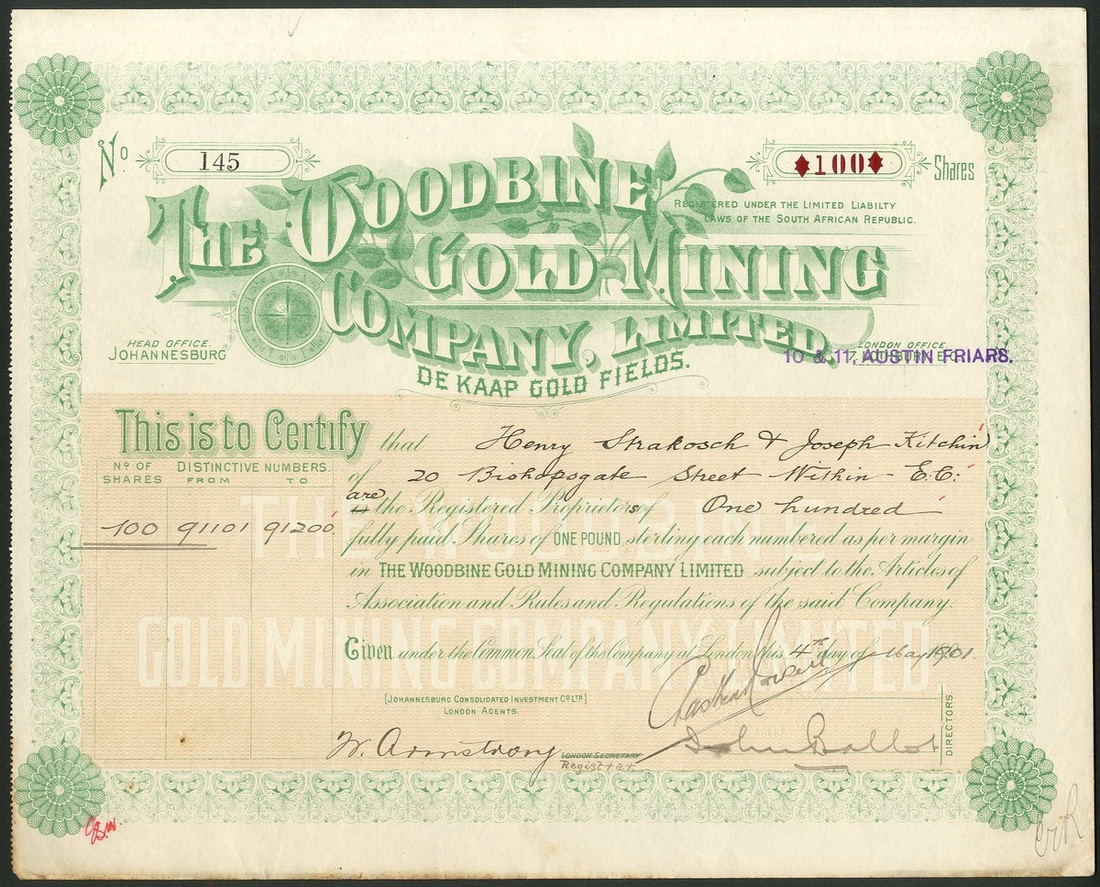 No 145
100 Shares
THE WOODBINE
GOLD MINING
COMPANY, LIMITED.
REGISTERED UNDER THE LIMITED LIABILTY
LAWS OF THE SOUTH AFRICAN REPUBLIC.
HEAD OFFICE.
JOHANNESBURG
LONDON OFFICE
10 & 11, AUSTIN FRIARS.
DE KAAP GOLD FIELDS.
This is to Certify that Henry Strakosch & Joseph Kitchin
of 20 Bishopsgate Street Within E.C:
are the Registered Proprietors of One hundred
fully paid Shares of ONE POUND sterling each numbered as per margin
in THE WOODBINE GOLD MINING COMPANY LIMITED subject to the Articles of
Association and Rules and Regulations of the said Company.
Nº OF SHARES
DISTINCTIVE NUMBERS.
FROM TO
100 91101 91200
THE WOODBINE
GOLD MINING COMPANY LIMITED
Given under the Common Seal of the Company at London this 4th day of May 1901.
(JOHANNESBURG CONSOLIDATED INVESTMENT CO LTD)
LONDON AGENTS.
W. Armstrong
LONDON SECRETARY
Registrar.
John Ballot
DIRECTORS.